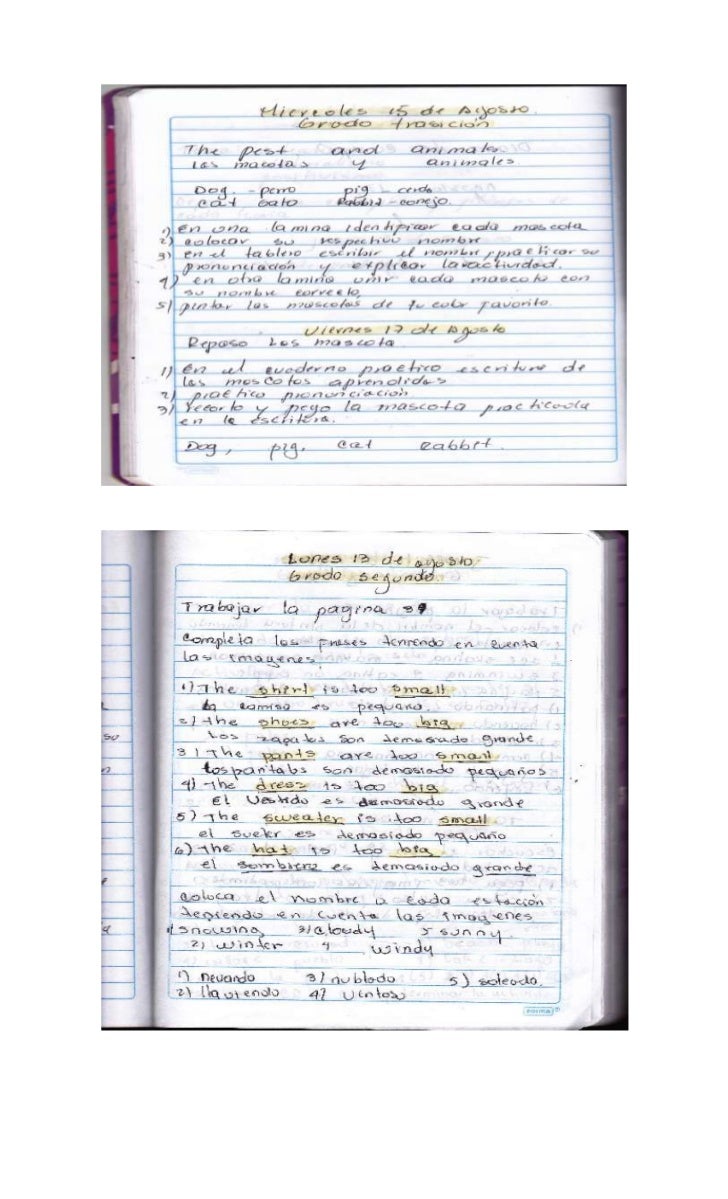 Miercoles 15 de Agosto.
Grado trasición
The pest and animals
Las macotas y animales
Dog - perro pig - cerdo
cat gato Rabbit - conejo.
1) en una lamina identificar cada mascota
2) colocar su respectivo nombre
3) en el tablero escribir el nombre, practicar su
pronunciación y explicar la actividad.
4) en otra lamina unir cada mascota con
su nombre correcto.
5) pintar las mascotas de tu color favorito.
Viernes 17 de Agosto
Repaso Las mascota
1) en el cuaderno practico escritura de
las mascotas aprendidas
2) practico pronunciación
3) recorto y pego la mascota practicada
en la escritura.
Dog, pig, cat Rabbit.
Lunes 13 de agosto.
Grado segundo.
Trabajar la pagina
completa las frases teniendo en cuenta
las imagenes.
1) The shirt is too small
la camisa es pequeño.
2) the shoes are too big
Los zapatos son demasiado grande
3) The pants are too small
los son demasiado pequeños
4) The dress is too big
El vestido es demasiado grande
5) The sweater is too small
el es demasiado pequeño
6) The hat is too big
el sombrero es demasiado grande
coloca el nombre a cada estación
teniendo en cuenta las imagenes
1) snowing 3) cloudy 5 sunny.
2) winter 4 windy
1) nevando 3) nublado 5) soleado.
2) lloviendo 4)
norma